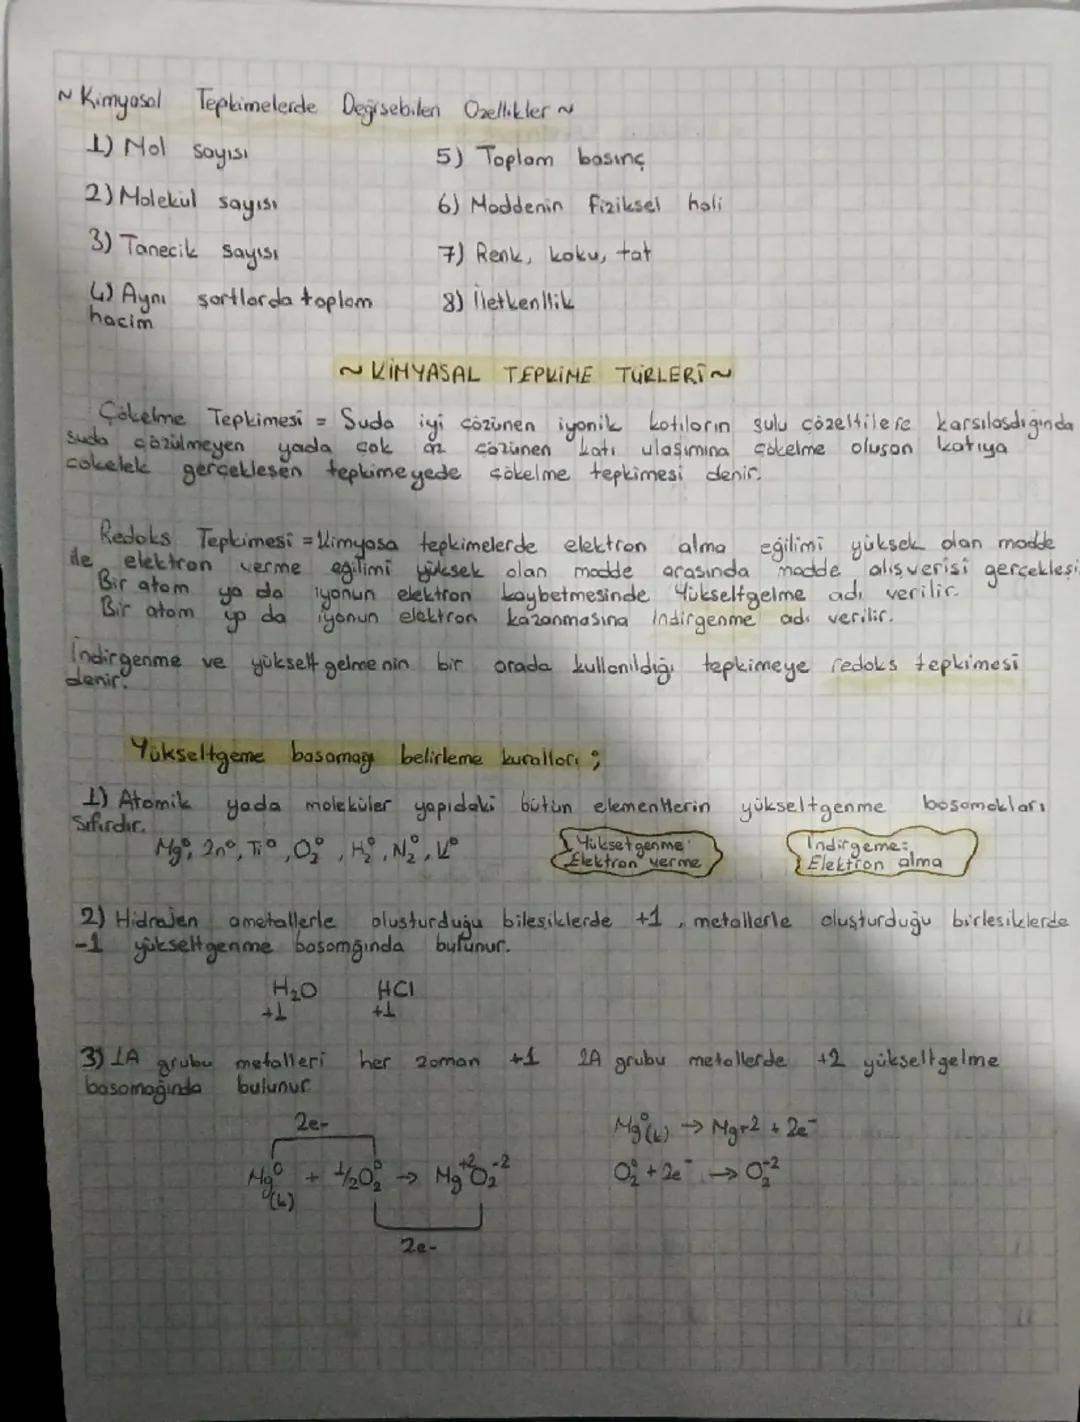 ~ Kimyasal Tepkimelerde Değişebilen Özellikler ~
1) Mol sayısı
2) Molekül sayısı
3) Tanecik sayısı
4) Aynı şartlarda toplam
hacim
5) Toplam basınç
6) Maddenin fiziksel hali
7) Renk, koku, tat
8) İletkenllik
~ KİMYASAL TEPKİME TÜRLERİ ~
Çökelme Tepkimesi = Suda iyi çözünen iyonik katıların sulu çözeltilere karşılaşdığında
suda çözülmeyen yada çok az çözünen katı ulaşımına çökelme oluşan katıya
çökelek gerçekleşen tepkimeyede çökelme tepkimesi denir.
Redoks Tepkimesi = Kimyasa tepkimelerde elektron alma eğilimi yüksek olan madde
ile elektron verme eğilimi yüksek olan madde arasında madde alışverisi gerçekleşi
Bir atom ya da iyonun elektron kaybetmesinde Yükseltgelme adı verilir.
Bir atom ya da iyonun elektron kazanmasına İndirgenme adı verilir.
İndirgenme ve yükseltgelmenin bir arada kullanıldığı tepkimeye redoks tepkimesi
denir.
Yükseltgeme basamağı belirleme kuralları ;
1) Atomik yada moleküler yapıdaki bütün elementlerin yükseltgenme basamakları
Sıfırdır.
Mg⁰, Zn⁰, Ti⁰, O₂⁰, H₂⁰, N₂⁰, K⁰
Yüksetgenme:
Elektron verme
İndirgeme:
Elektron alma
2) Hidrajen ametallerle oluşturduğu bileşiklerde +1, metallerle oluşturduğu birlesiklerde
-1 yükseltgenme basamğında bulunur.
H₂O HCl
+1 +1
3) 1A grubu metalleri her zaman +1 2A grubu metallerde +2 yükseltgelme
basamağında bulunur
2e-
Mg⁰(k) + 1/2O₂⁰ → Mg⁺²O₂⁻²
2e-
Mg⁰(k) → Mg+2 + 2e⁻
O₂⁰ + 2e⁻ → O₂⁻²